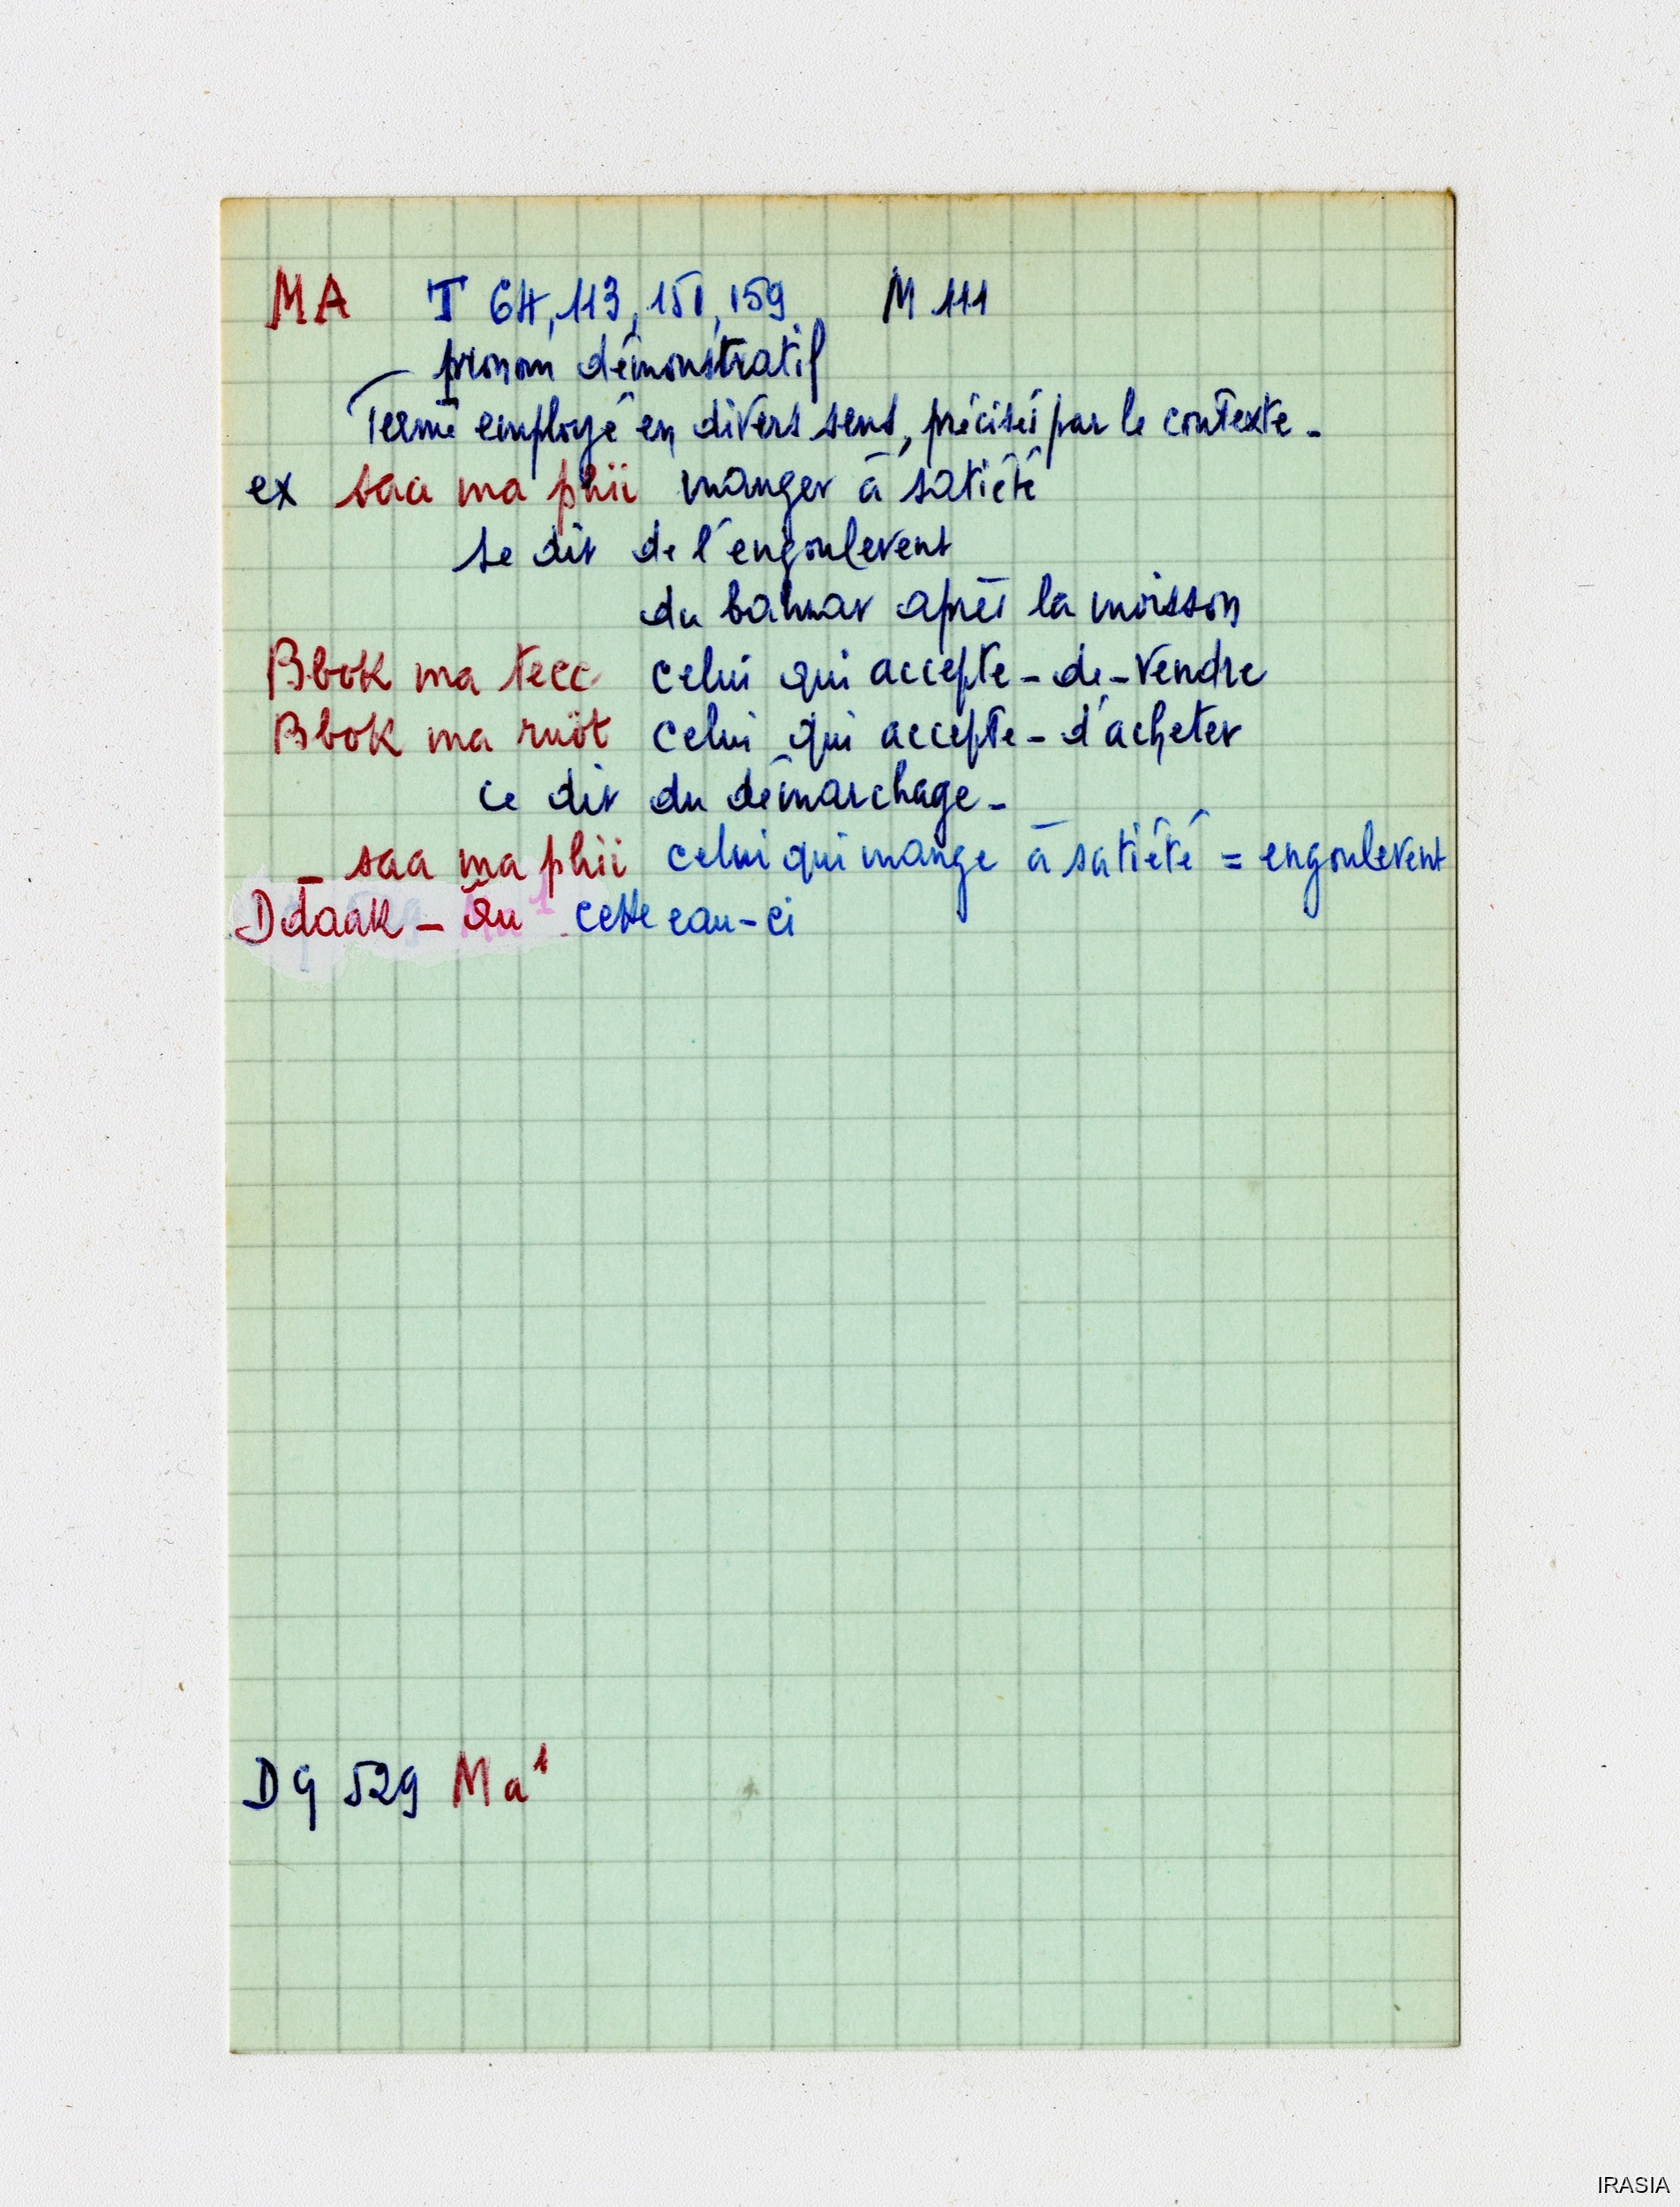 MA T 64, 113, 151, 159 M 111
pronom démonstratif
Terme employé en divers sens, précisés par le contexte -
ex saa ma phii manger à satiété
se dit de l'engoulevent
du bahnar après la moisson
Bbok ma tecc celui qui accepte - de - vendre
Bbok ma ruöt celui qui accepte - d'acheter
ce dit du démarchage -
_ saa ma phii celui qui mange à satiété = engoulevent
Ddaak - âu cette eau-ci
DG 529 Ma¹
IRASIA